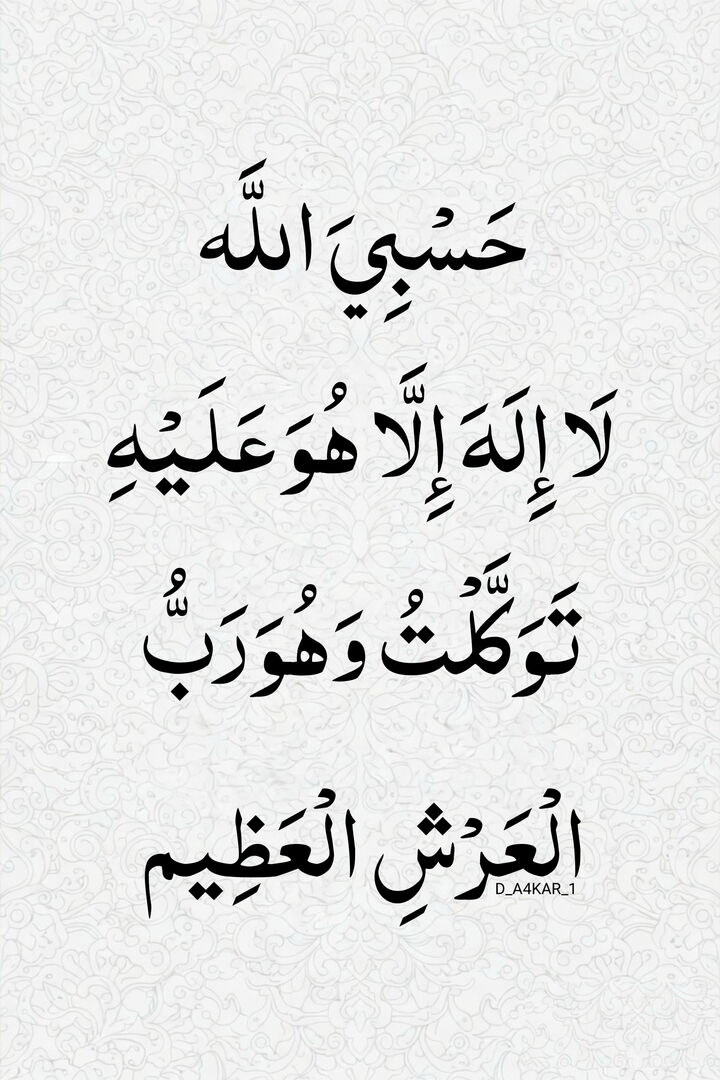 حَسْبِيَ اللَّه
لَا إِلَهَ إِلَّا هُوَ عَلَيْهِ
تَوَكَّلْتُ وَهُوَ رَبُّ
الْعَرْشِ الْعَظِيم
D_A4KAR_1